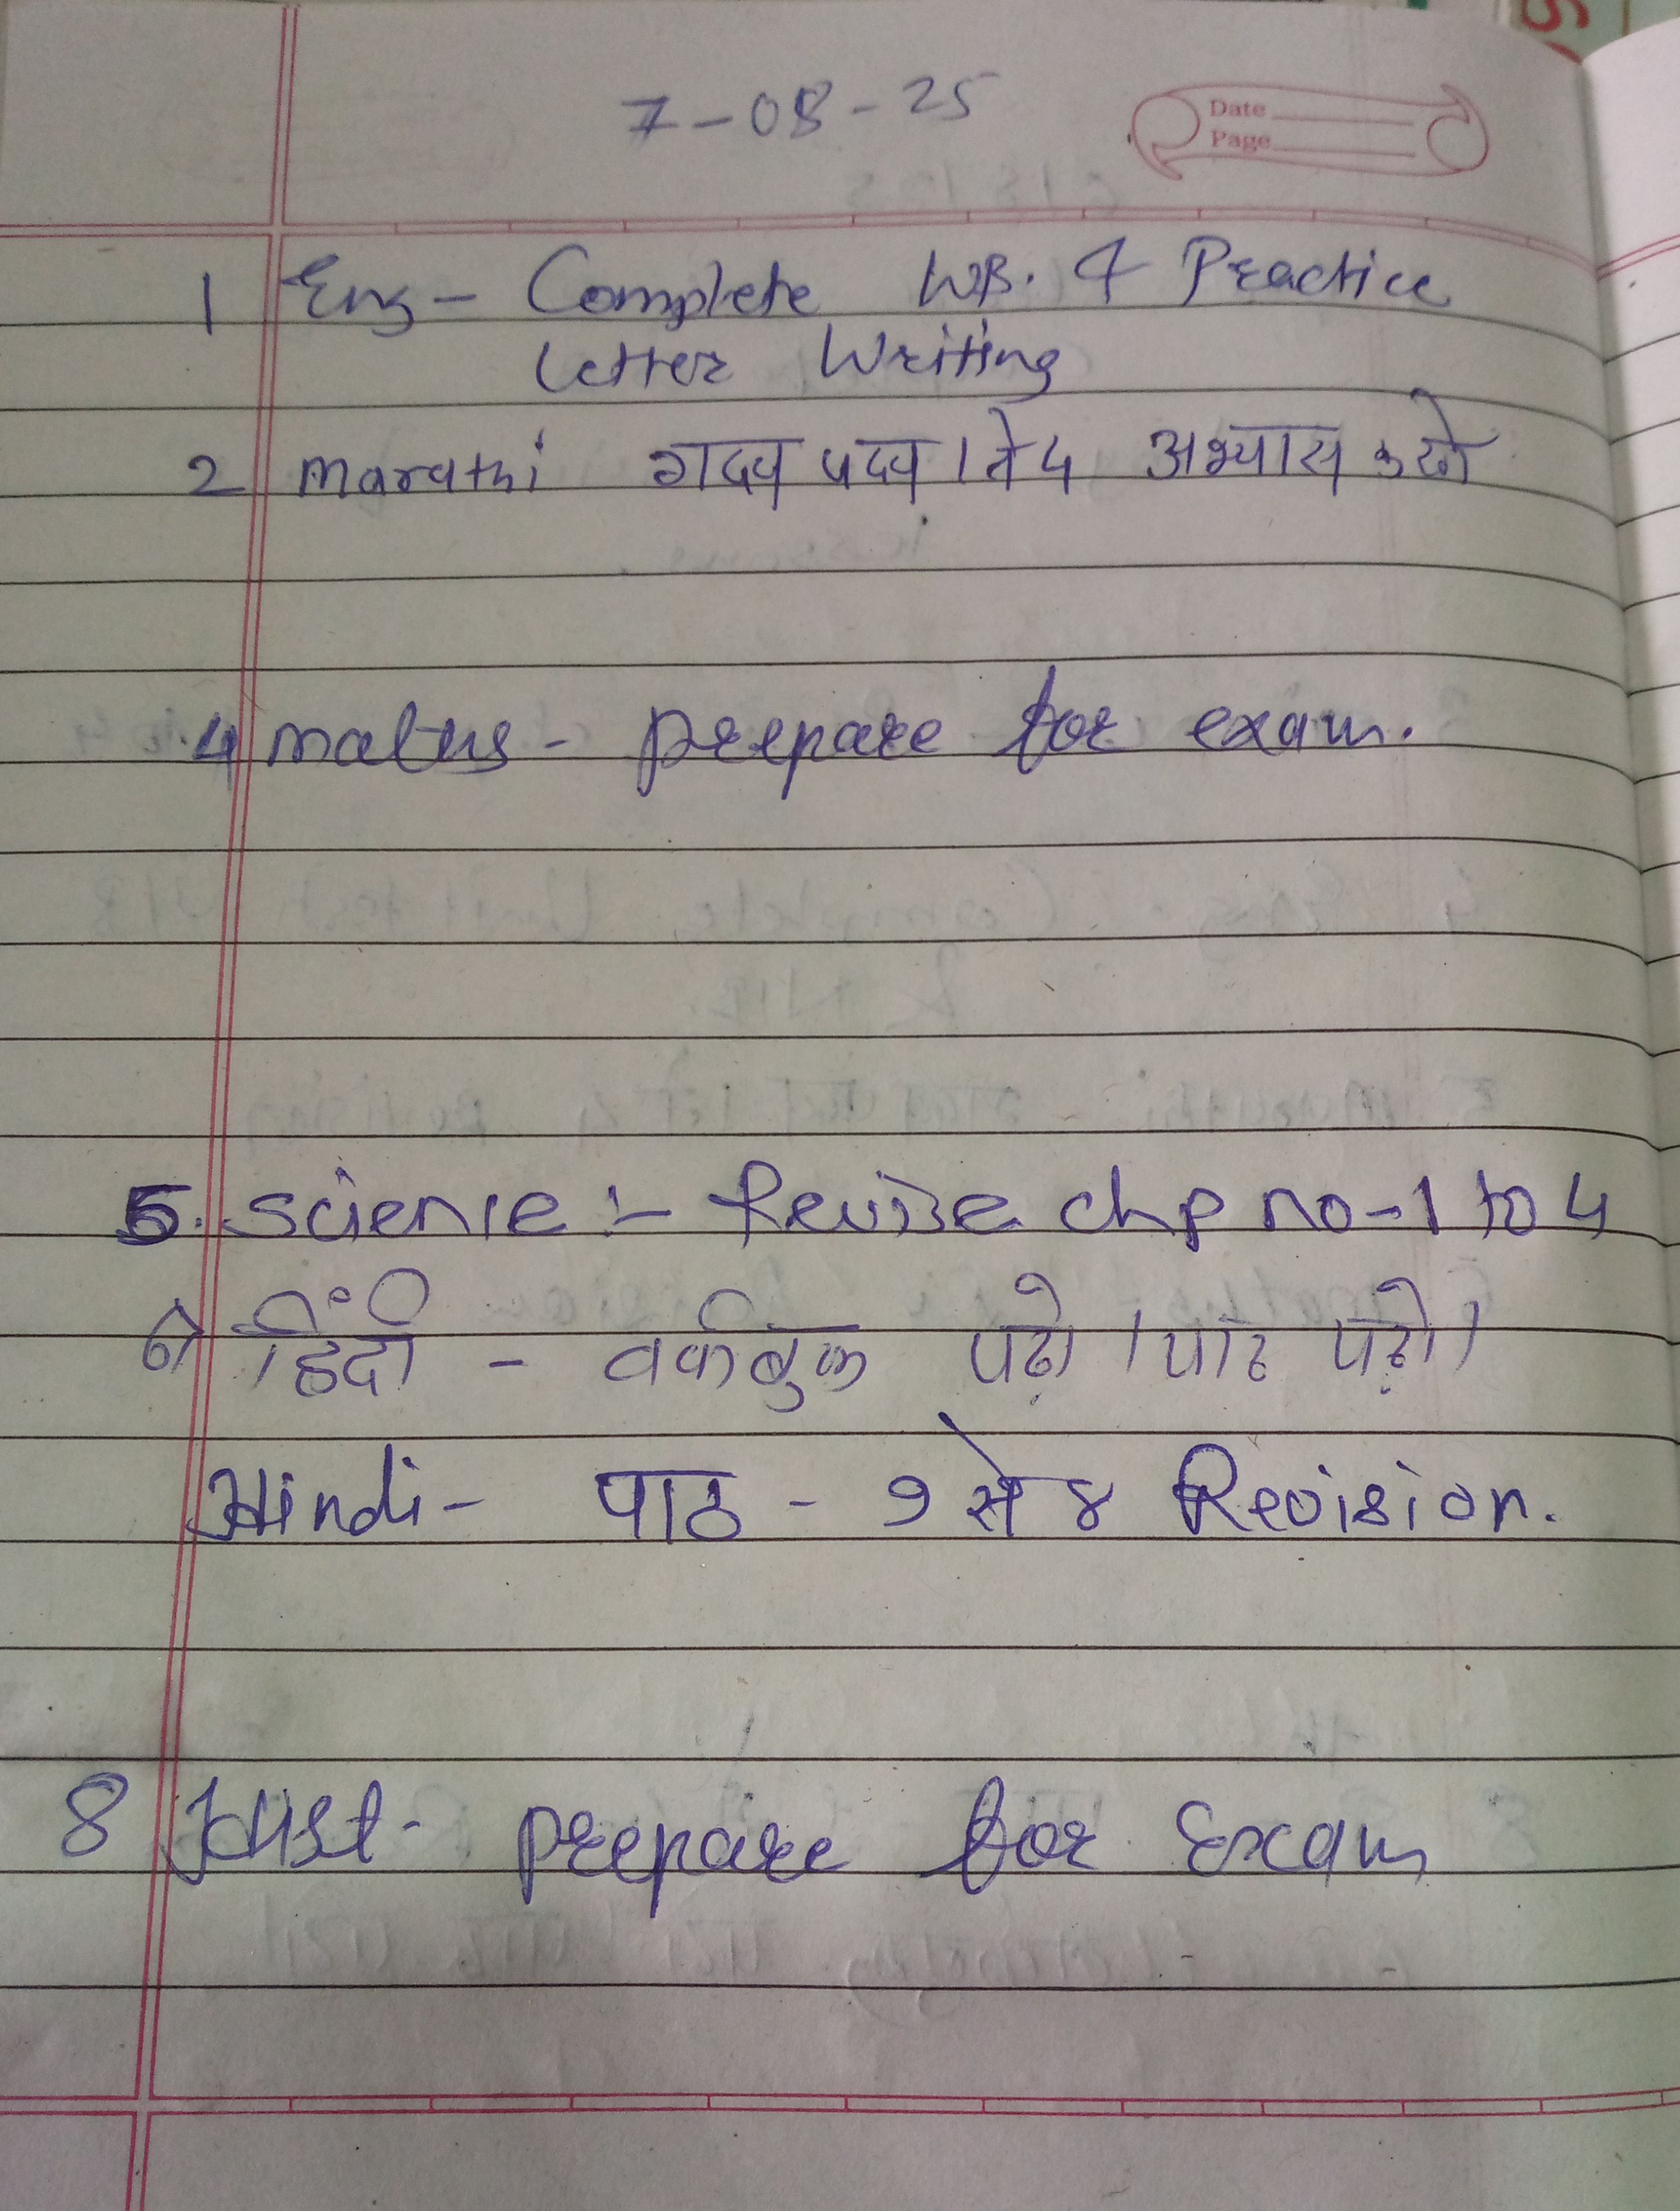 7-08-25
Date
Page
1 Eng - Complete W.B. & Practice
Letter Writing
2 Marathi गदय पदय 1 ते 4 अभ्यास करणे
4 maths - prepare for exam.
5. Science :- Revise chp no-1 to 4
हिंदी - वर्कबुक पढो । पाठ पढो।
Hindi - पाठ - १ से ४ Revision.
8 Hist - prepare for Exam